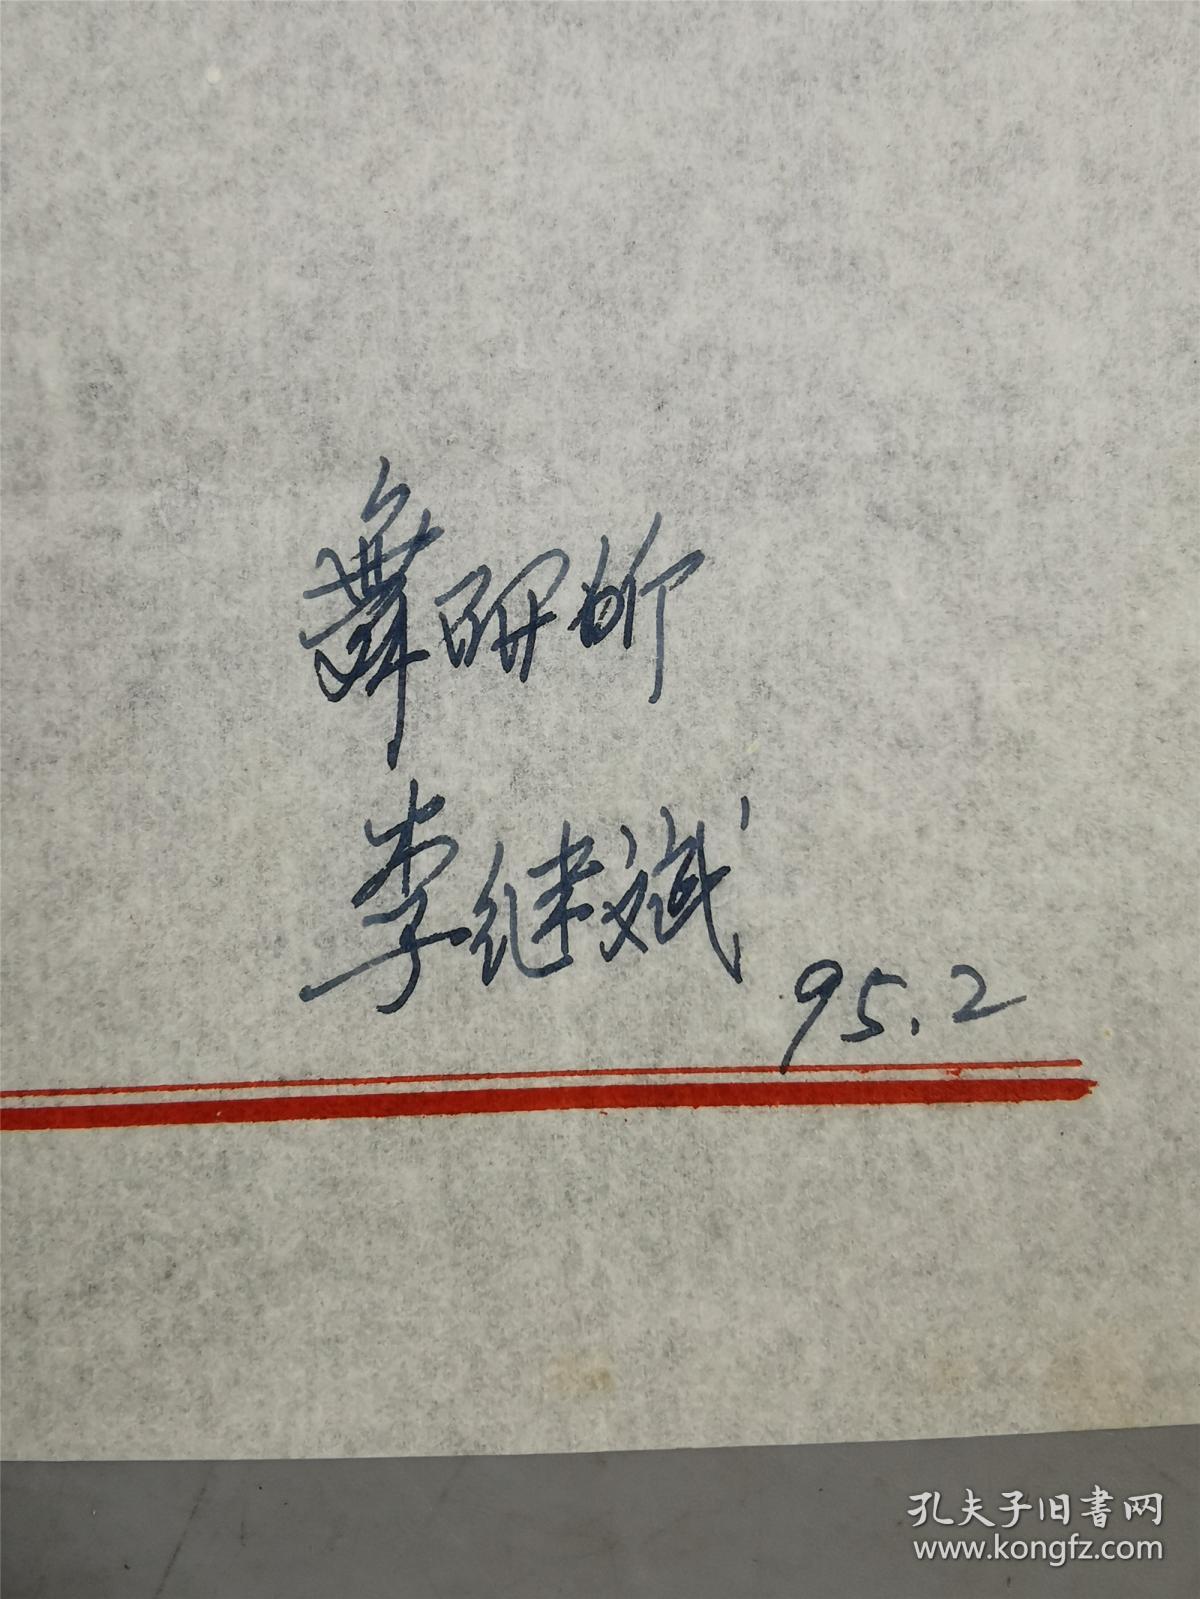 舞研所
李继斌
95.2
孔夫子旧書网
www.kongfz.com